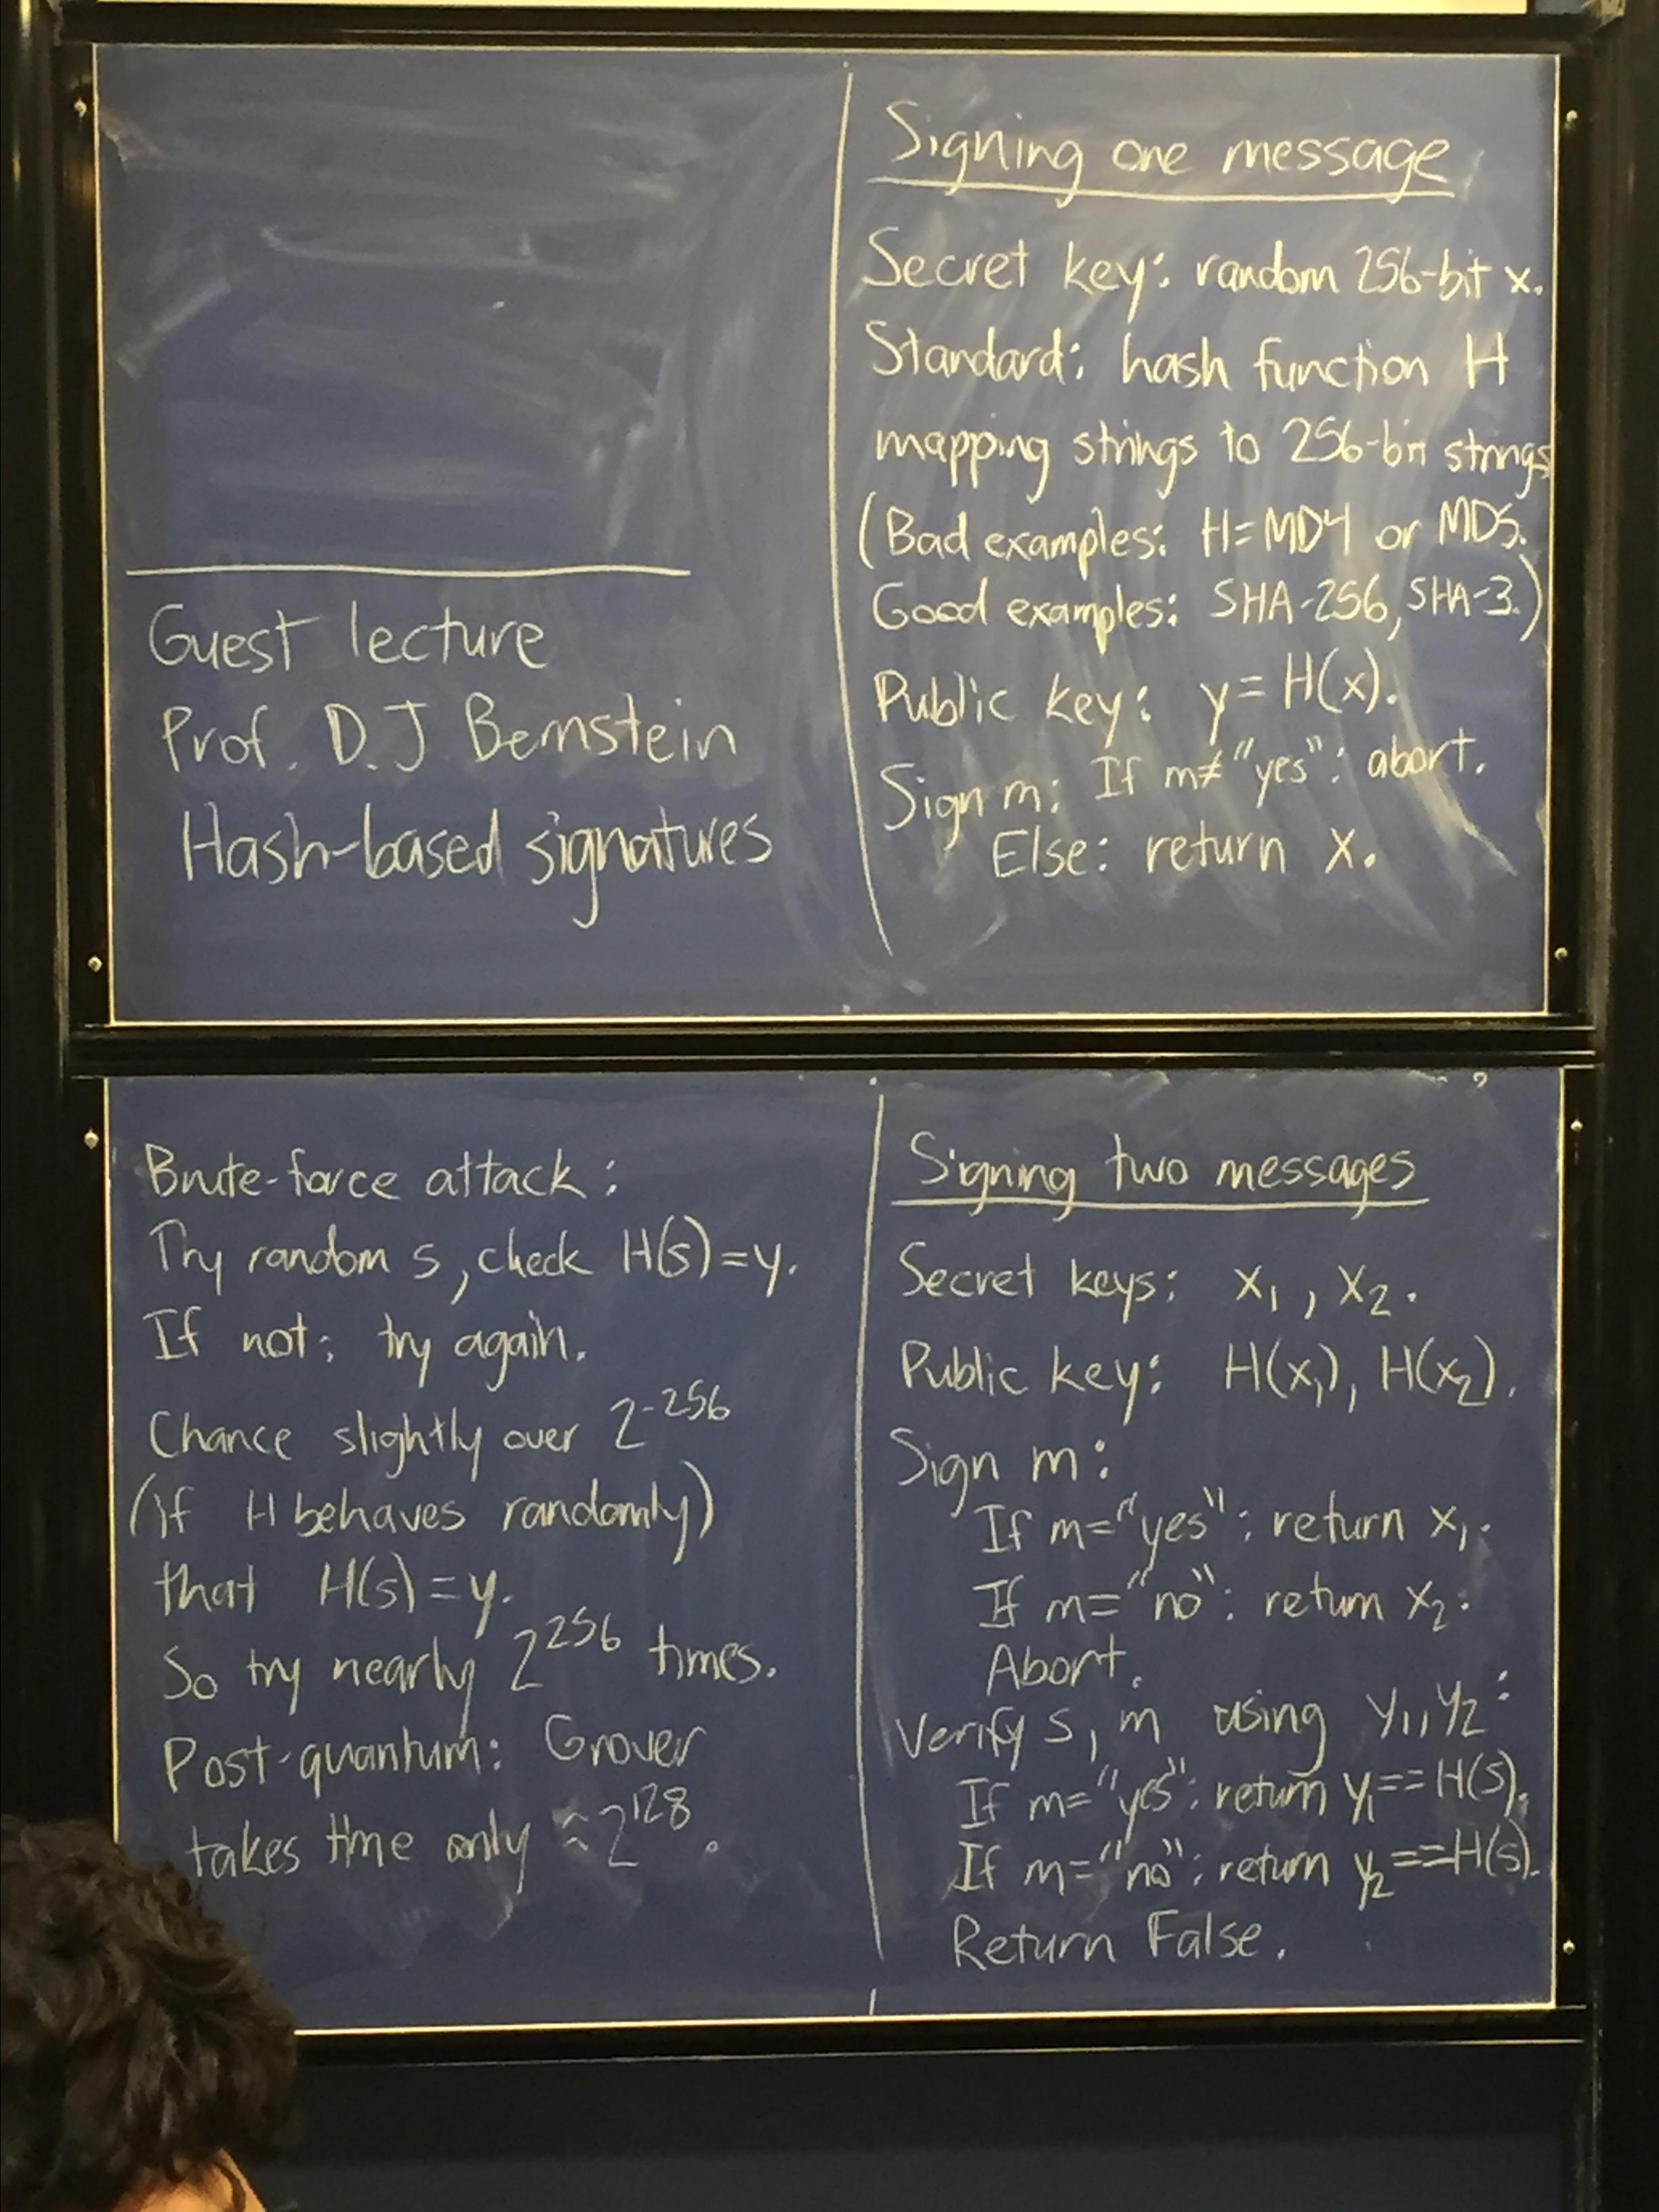 Guest lecture
Prof. D.J Bernstein
Hash-based signatures
Signing one message
Secret key: random 256-bit x.
Standard: hash function H
mapping strings to 256-bit strings
(Bad examples: H=MD4 or MD5.
Good examples: SHA-256, SHA-3.)
Public key: y=H(x).
Sign m: If m≠"yes": abort.
Else: return x.
Brute-force attack:
Try random s, check H(s)=y.
If not: try again.
Chance slightly over 2^-256
(if H behaves randomly)
that H(s)=y.
So try nearly 2^256 times.
Post-quantum: Grover
takes time only ≈2^128.
Signing two messages
Secret keys: x₁, x₂.
Public key: H(x₁), H(x₂).
Sign m:
If m="yes": return x₁.
If m="no": return x₂.
Abort.
Verify s, m using y₁, y₂:
If m="yes": return y₁==H(s).
If m="no": return y₂==H(s).
Return False.